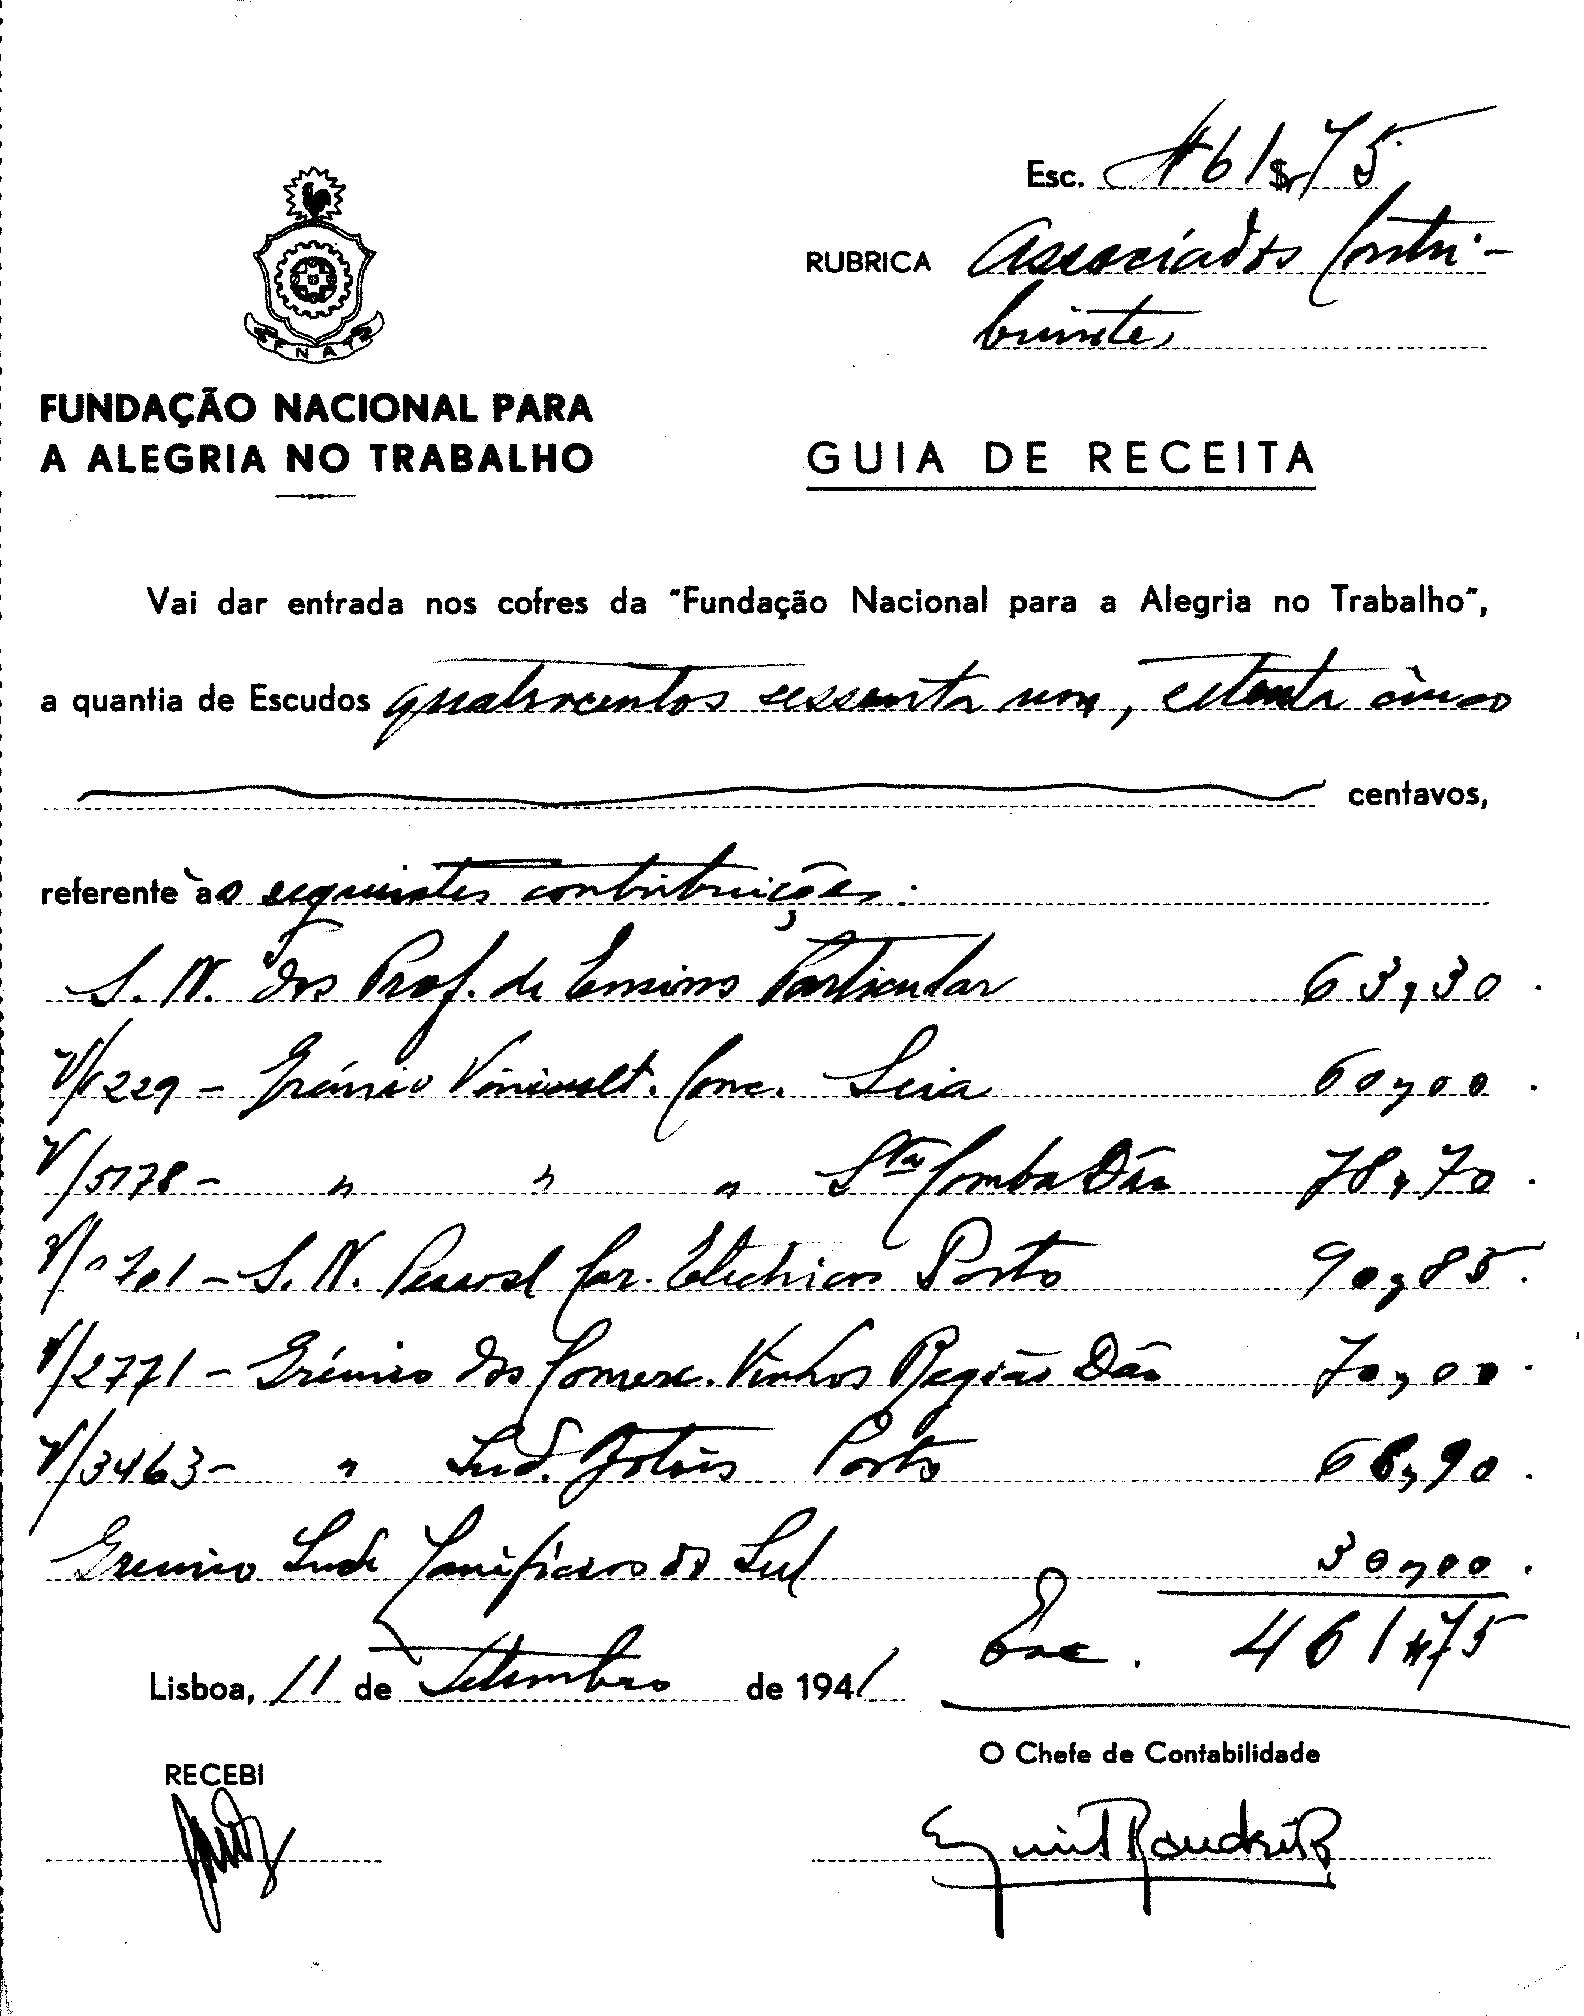 Esc. 461$75
RUBRICA Associados Contri-
buintes
FNAT
FUNDAÇÃO NACIONAL PARA
A ALEGRIA NO TRABALHO
GUIA DE RECEITA
Vai dar entrada nos cofres da "Fundação Nacional para a Alegria no Trabalho",
a quantia de Escudos quatrocentos sessenta um, setenta cinco
centavos,
referente às seguintes contribuições:
S. N. dos Prof. de Ensino Particular 63,30
V/1229 - Grémio Vinicult. Conc. Seia 60,00
V/5178 - " " " Sta Comba Dão 78,70
701 - S. N. Pessoal Car. Eléctricos Porto 90,85
V/2771 - Grémio dos Comerc. Vinhos Região Dão 70,00
V/3463 - " Ind. Porto 68,90
Gremio Ind. Lanifícios do Sul 30,00
Esc. 461$75
Lisboa, 11 de Setembro de 1941
O Chefe de Contabilidade
RECEBI